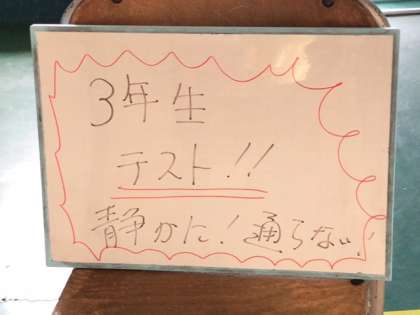 3年生
テスト!!
静かに!通らない!